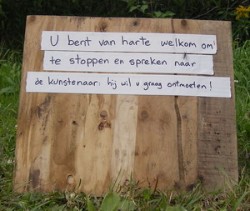 U bent van harte welkom om
te stoppen en spreken naar
de kunstenaar: hij wil u graag ontmoeten!